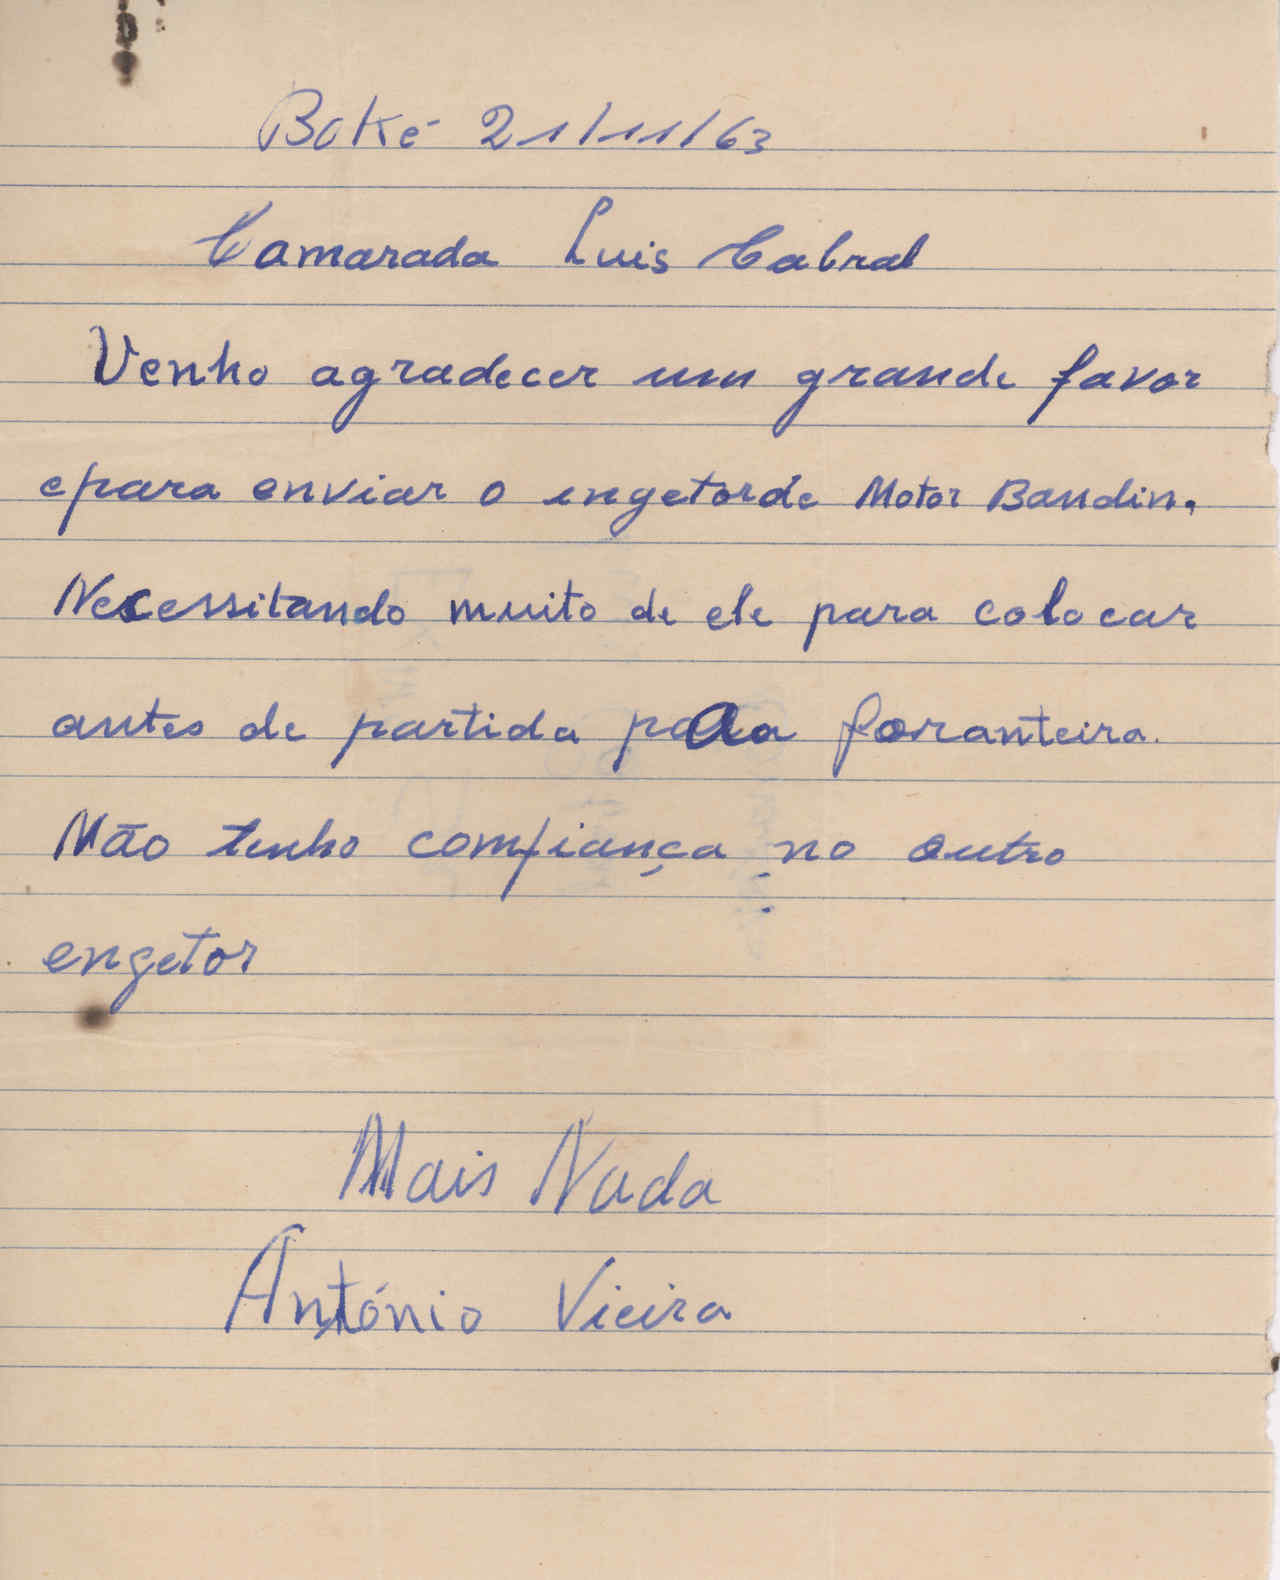 Boké 21/11/63
Camarada Luis Cabral
Venho agradecer um grande favor
epara enviar o ingetorde Motor Bandin.
Necessitando muito de ele para colocar
antes de partida paAa foranteira.
Mão tenho comfiança no outro
engetor
Mais Nada
António Vieira